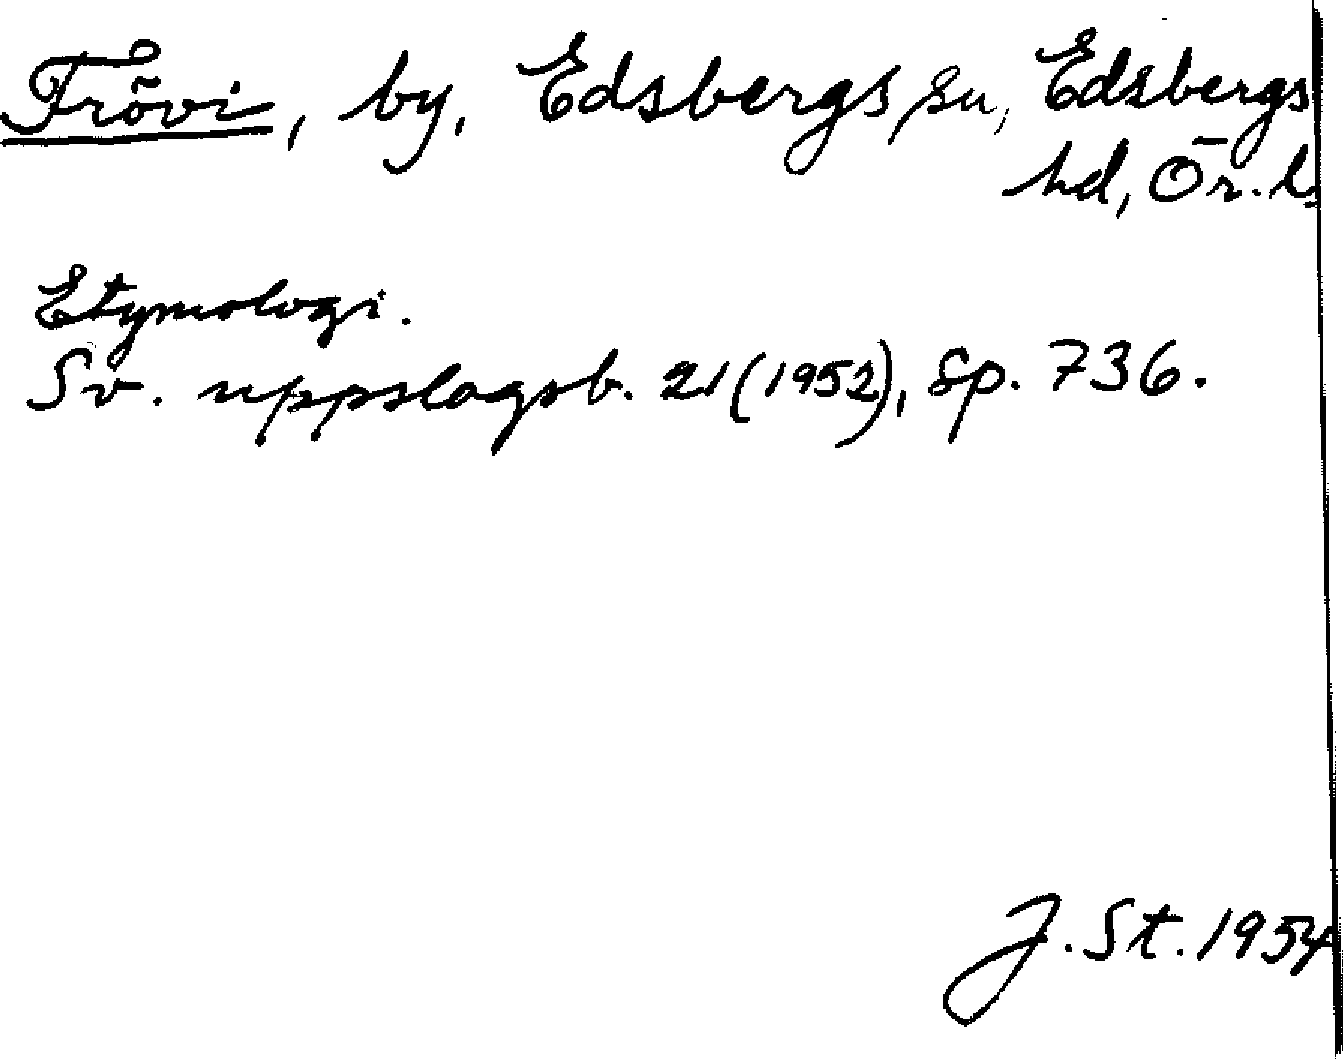 Frövi, by, Edsbergs sn, Edsbergs
hd, Ör. l.
Etymologi.
Sv. uppslagsb. 21 (1952), sp. 736.
J. St. 1954